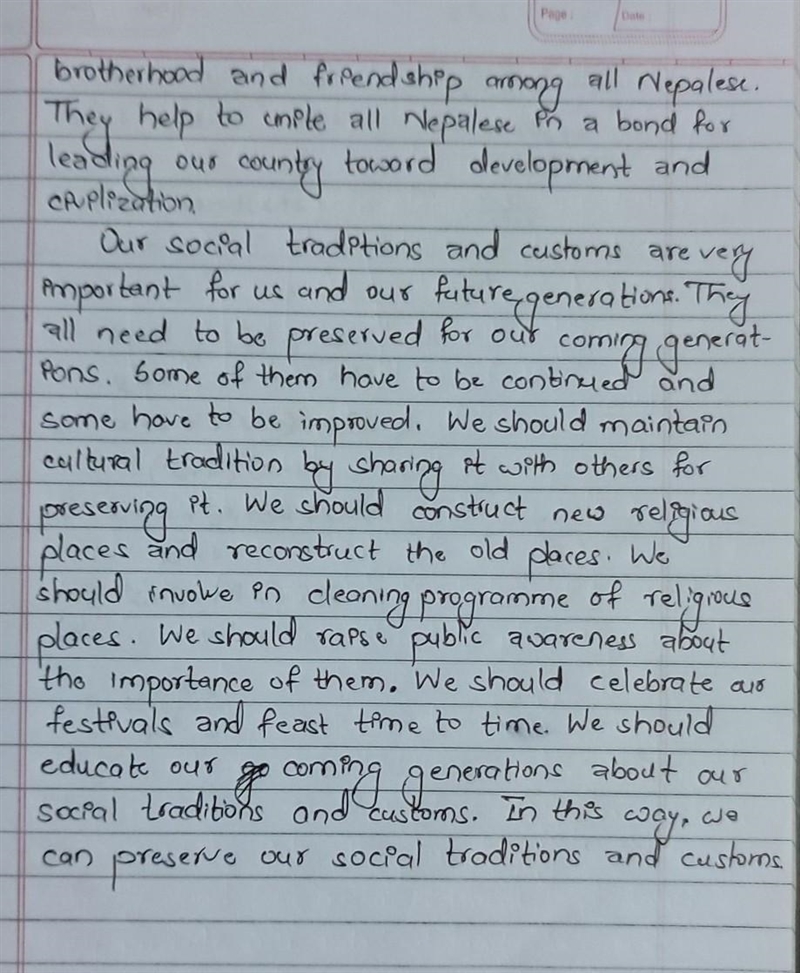 Page : Date :
brotherhood and friendship among all Nepalese.
They help to unite all Nepalese in a bond for
leading our country toward development and
civilization.
Our social traditions and customs are very
important for us and our future generations. They
all need to be preserved for our coming generat-
ions. Some of them have to be continued and
some have to be improved. We should maintain
cultural tradition by sharing it with others for
preserving it. We should construct new religious
places and reconstruct the old places. We
should involve in cleaning programme of religious
places. We should raise public awareness about
the importance of them. We should celebrate our
festivals and feast time to time. We should
educate our coming generations about our
social traditions and customs. In this way, we
can preserve our social traditions and customs.